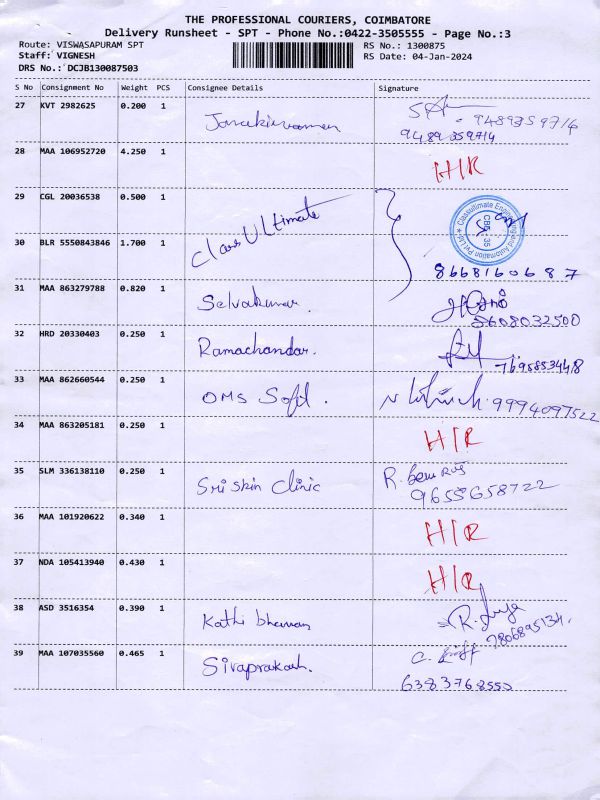 THE PROFESSIONAL COURIERS, COIMBATORE
Delivery Runsheet - SPT - Phone No.:0422-3505555 - Page No.:3
Route: VISWASAPURAM SPT RS No.: 1300875
Staff: VIGNESH RS Date: 04-Jan-2024
DRS No.: DCJB130087503
S No Consignment No Weight PCS Consignee Details Signature
27 KVT 2982625 0.200 1 9489359716
9489359714
28 MAA 106952720 4.250 1 H/R
29 CGL 20036538 0.500 1 Class Ultimate
Classultimate Engineering and Automation Pvt Ltd
CBE - 35
30 BLR 5550843846 1.700 1 8668160687
31 MAA 863279788 0.820 1 Selvakumar.
8608032500
32 HRD 20330403 0.250 1 Ramachandar.
7695853448
33 MAA 862660544 0.250 1 OMS Soft . 9994097522
34 MAA 863205181 0.250 1 H/R
35 SLM 336138110 0.250 1 Sri Skin Clinic R.
9655658722
36 MAA 101920622 0.340 1 H/R
37 NDA 105413940 0.430 1 H/R
38 ASD 3516354 0.390 1 Kathi R.
7806895134.
39 MAA 107035560 0.465 1 Sivaprakash. C.
6383768550